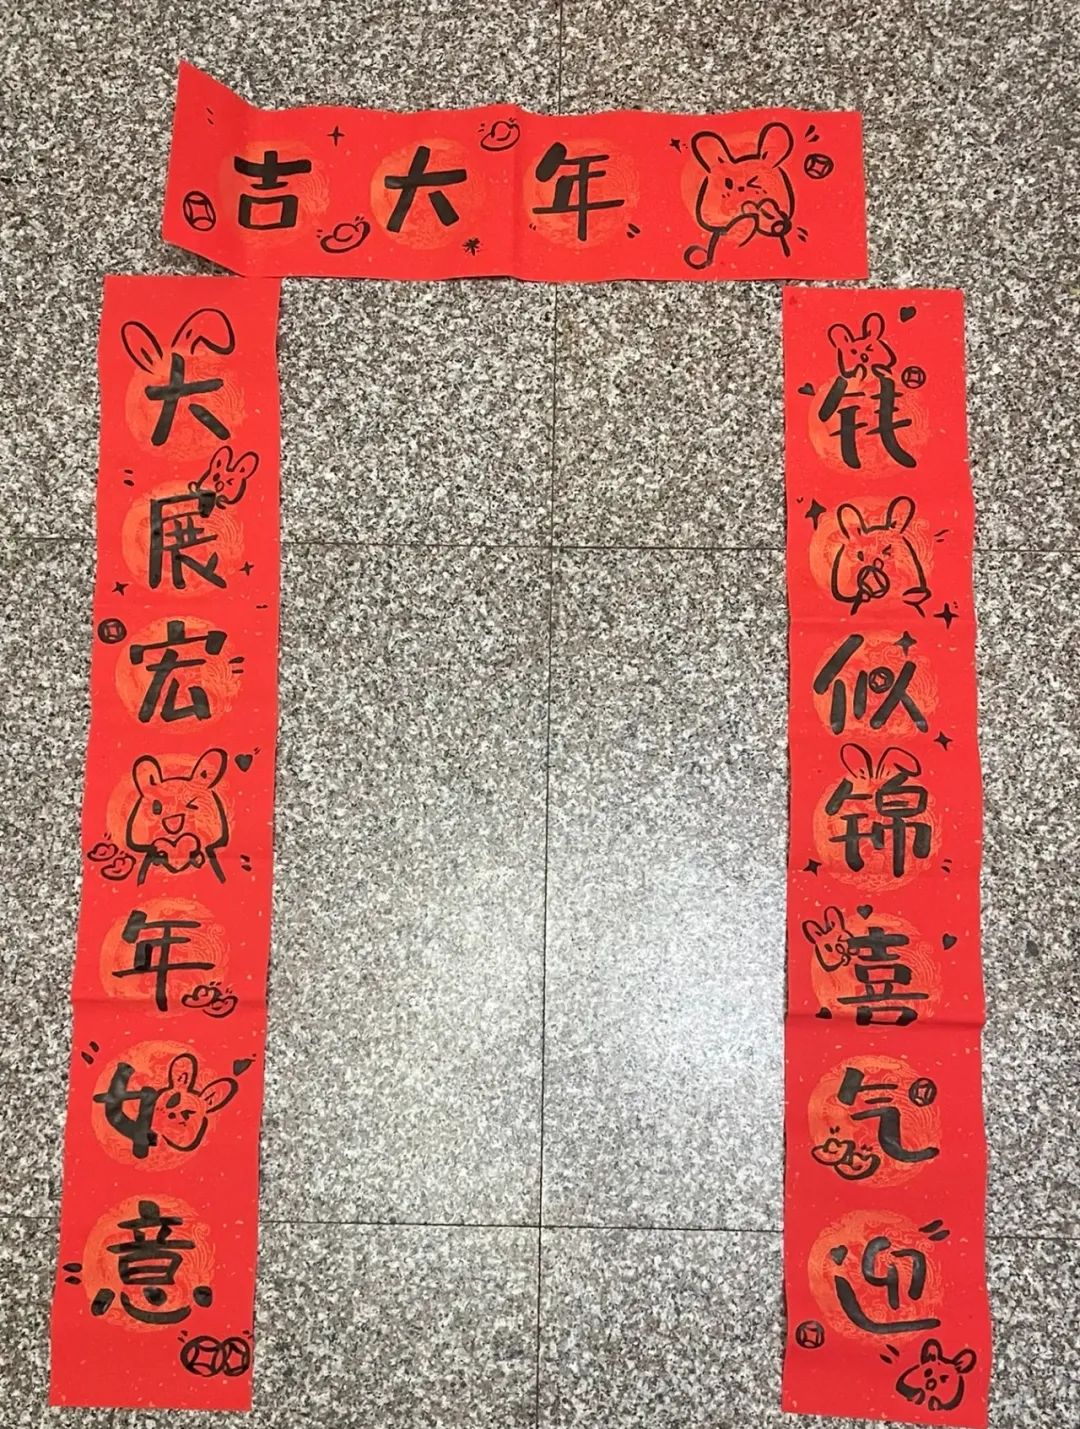 年大吉
钱似锦喜气迎
大展宏年如意